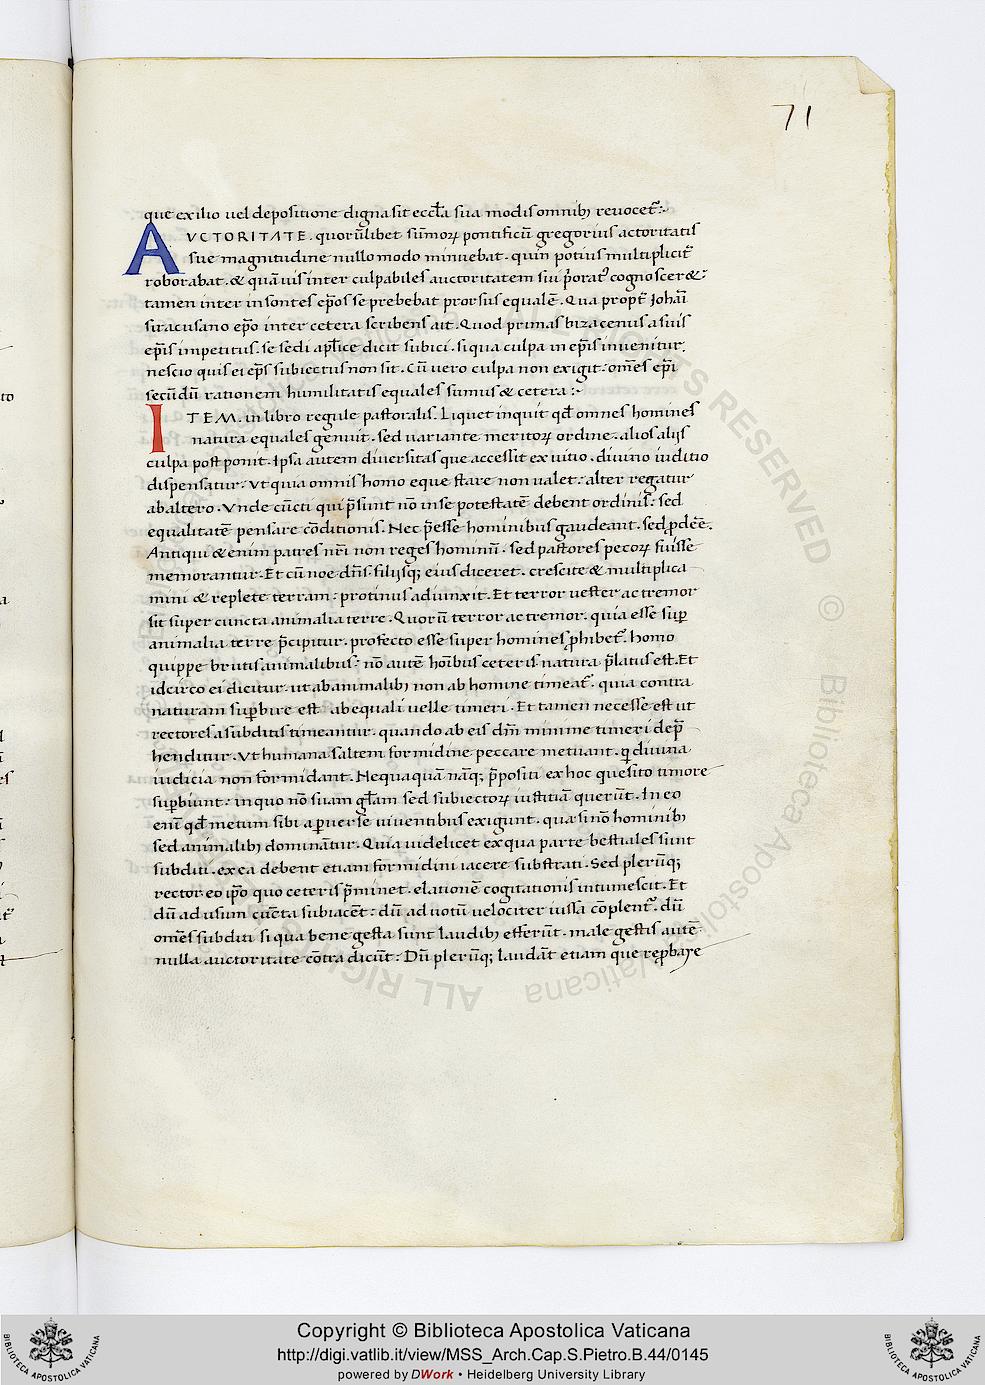 71
que exilio uel depositione digna sit eccl̄a sua modis omnibꝫ reuocet᷑:
AVCTORITATE. quorūlibet sūmoꝝ pontificū gregorius actoritatis
sue magnitudine nullo modo minuebat. quin potius multiplicit᷑
roborabat. & quāuis inter culpabiles auctoritatem sui p̄orat᷑ cognoscer&:
tamen inter insontes ep̄os se prebebat prorsus equalē. Qua propt̄ Iohāi
siracusano ep̄o inter cetera scribens ait. Quod primas bizacenus a suis
ep̄is impetitus. se sedi ap̄lice dicit subici. si qua culpa in ep̄is inuenitur.
nescio quis ei ep̄s subiectus non sit. Cū uero culpa non exigit: om̄es ep̄i
secūdū rationem humilitatis equales sumus & cetera:
ITEM. in libro regule pastoralis. Liquet inquit qđ omnes homines
natura equales genuit. sed uariante meritoꝝ ordine. alios alijs
culpa post ponit. Ipsa autem diuersitas que accessit ex uitio. diuino iuditio
dispensatur: Vt quia omnis homo eque stare non ualet: alter regatur
ab altero. Vnde cūcti qui p̄sunt nō in se potestatē debent ordinis: sed
equalitatē pensare cōditionis. Nec p̄esse hominibus gaudeant. sed ꝓdeē.
Antiqui & enim patres nr̄i non reges hominū. sed pastores pecoꝝ fuisse
memorantur. Et cū noe dn̄s. filijsqꝫ eius diceret. crescite & multiplica
mini & replete terram: protinus adiunxit. Et terror uester ac tremor
sit super cuncta animalia terre. Quorū terror ac tremor. quia esse suꝑ
animalia terre p̄cipitur. profecto esse super homines ꝓhibet᷑. homo
quippe brutis animalibus: nō autē hoībus ceteris natura p̄latus est. Et
idcirco ei dicitur. ut ab animalibꝫ non ab homine timeat᷑. quia contra
naturam suꝑbire est ab equali uelle timeri. Et tamen necesse est ut
rectores a subditis timeantur. quando ab eis dm̄ minime timeri dep̄
henditur. Vt humana saltem formidine peccare metuant. q̄ diuina
iudicia non formidant. Nequaquā nāqꝫ p̄positi ex hoc quesito timore
suꝑbiunt: in quo nō suam gl̄am sed subiectoꝝ iustitiā querūt. In eo
enī qđ metum sibi a ꝑuerse uiuentibus exigunt. quasi nō hominibꝫ
sed animalibꝫ dominātur. Quia uidelicet ex qua parte bestiales sunt
subditi. ex ea debent etiam formidini iacere substrati. Sed plerūqꝫ
rector eo ip̄o quo ceteris p̄minet. elationē cogitationis intumescit. Et
dū ad usum cūcta subiacēt: dū ad uotū uelociter iussa cōplent᷑. dū
om̄es subditi si qua bene gesta sunt laudibꝫ efferūt. male gestis autē
nulla auctoritate cōtra dicūt: Dū plerūqꝫ laudāt etiam que reꝓbare
ALL RIGHTS RESERVED © Biblioteca Apostolica Vaticana
Copyright © Biblioteca Apostolica Vaticana
http://digi.vatlib.it/view/MSS_Arch.Cap.S.Pietro.B.44/0145
powered by DWork • Heidelberg University Library
BIBLIOTECA APOSTOLICA VATICANA
BIBLIOTECA APOSTOLICA VATICANA